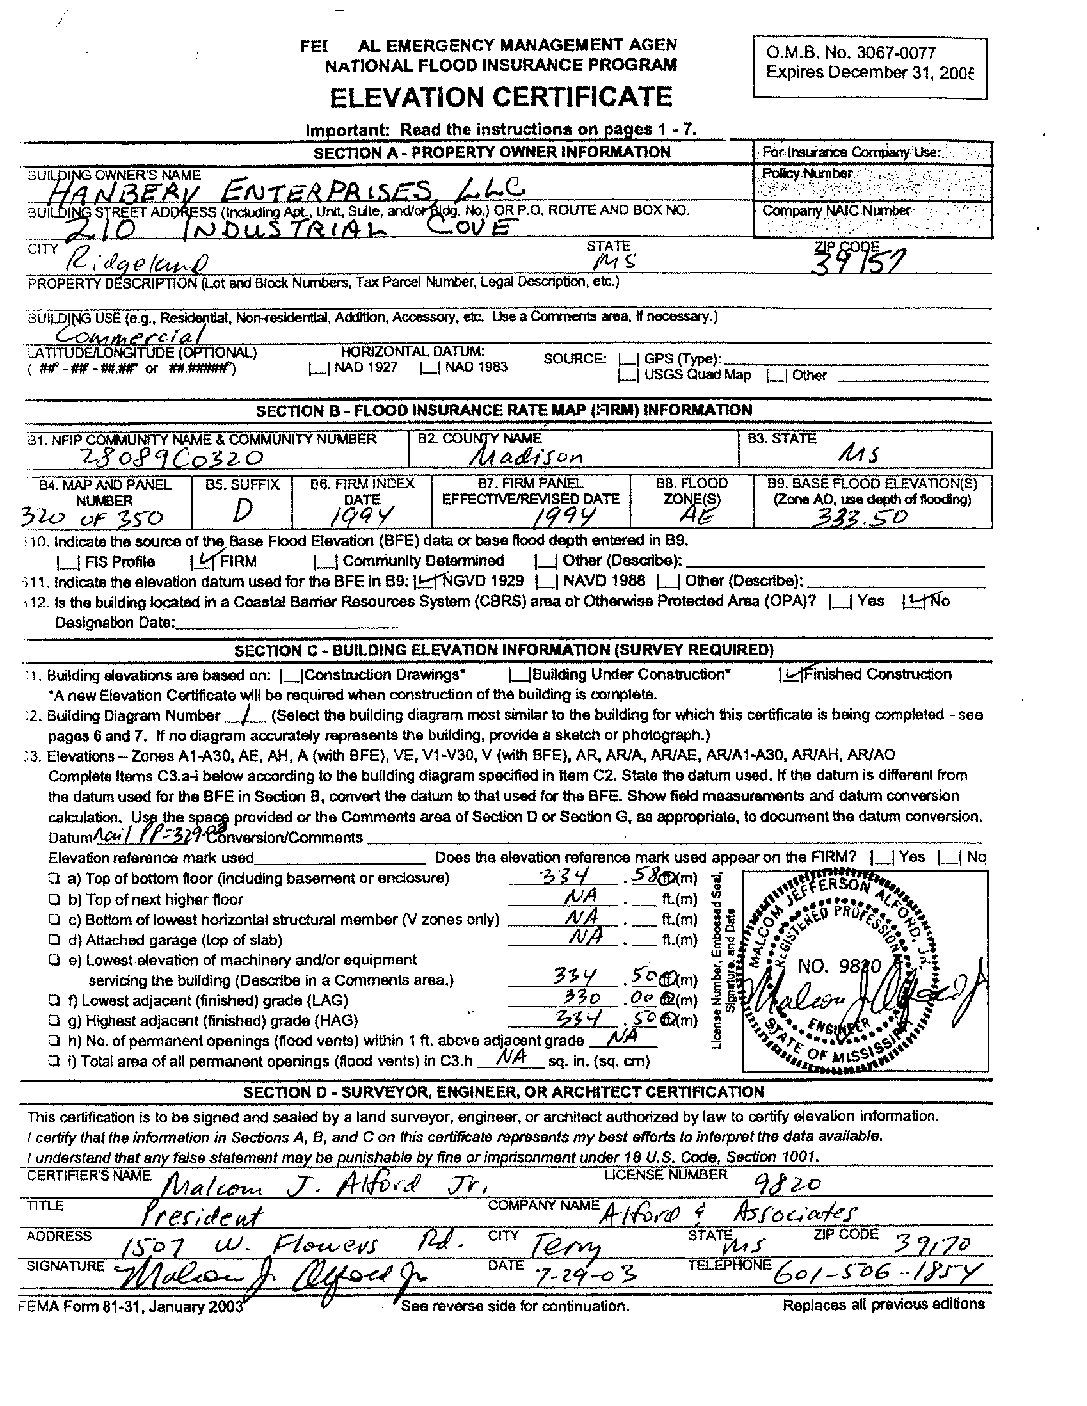 FE AL EMERGENCY MANAGEMENT AGEN
NATIONAL FLOOD INSURANCE PROGRAM
ELEVATION CERTIFICATE
Important: Read the instructions on pages 1 - 7.
O.M.B. No. 3067-0077
Expires December 31, 2005
SECTION A - PROPERTY OWNER INFORMATION
For Insurance Company Use:
BUILDING OWNER'S NAME
HANBERY ENTERPRISES LLC
Policy Number
BUILDING STREET ADDRESS (Including Apt., Unit, Suite, and/or Bldg. No.) OR P.O. ROUTE AND BOX NO.
210 INDUSTRIAL COVE
Company NAIC Number
CITY Ridgeland STATE MS ZIP CODE 39157
PROPERTY DESCRIPTION (Lot and Block Numbers, Tax Parcel Number, Legal Description, etc.)
BUILDING USE (e.g., Residential, Non-residential, Addition, Accessory, etc. Use a Comments area, if necessary.)
Commercial
LATITUDE/LONGITUDE (OPTIONAL) HORIZONTAL DATUM: SOURCE: |__| GPS (Type):
( ##° - ##' - ##.##" or ##.#####°) |__| NAD 1927 |__| NAD 1983 |__| USGS Quad Map |__| Other
SECTION B - FLOOD INSURANCE RATE MAP (FIRM) INFORMATION
B1. NFIP COMMUNITY NAME & COMMUNITY NUMBER B2. COUNTY NAME B3. STATE
28089C0320 Madison MS
B4. MAP AND PANEL NUMBER B5. SUFFIX B6. FIRM INDEX DATE B7. FIRM PANEL EFFECTIVE/REVISED DATE B8. FLOOD ZONE(S) B9. BASE FLOOD ELEVATION(S) (Zone AO, use depth of flooding)
320 OF 350 D 1994 1994 AE 333.50
10. Indicate the source of the Base Flood Elevation (BFE) data or base flood depth entered in B9.
|__| FIS Profile |✓| FIRM |__| Community Determined |__| Other (Describe):
11. Indicate the elevation datum used for the BFE in B9: |✓| NGVD 1929 |__| NAVD 1988 |__| Other (Describe):
12. Is the building located in a Coastal Barrier Resources System (CBRS) area or Otherwise Protected Area (OPA)? |__| Yes |✓| No
Designation Date:
SECTION C - BUILDING ELEVATION INFORMATION (SURVEY REQUIRED)
1. Building elevations are based on: |__|Construction Drawings* |__|Building Under Construction* |✓|Finished Construction
*A new Elevation Certificate will be required when construction of the building is complete.
2. Building Diagram Number 1 (Select the building diagram most similar to the building for which this certificate is being completed - see
pages 6 and 7. If no diagram accurately represents the building, provide a sketch or photograph.)
3. Elevations – Zones A1-A30, AE, AH, A (with BFE), VE, V1-V30, V (with BFE), AR, AR/A, AR/AE, AR/A1-A30, AR/AH, AR/AO
Complete Items C3.a-i below according to the building diagram specified in Item C2. State the datum used. If the datum is different from
the datum used for the BFE in Section B, convert the datum to that used for the BFE. Show field measurements and datum conversion
calculation. Use the space provided or the Comments area of Section D or Section G, as appropriate, to document the datum conversion.
Datum Nail PP= Conversion/Comments
Elevation reference mark used Does the elevation reference mark used appear on the FIRM? |__| Yes |__| No
❏ a) Top of bottom floor (including basement or enclosure) 334 . 58 ft.(m)
❏ b) Top of next higher floor NA . ft.(m)
❏ c) Bottom of lowest horizontal structural member (V zones only) NA . ft.(m)
❏ d) Attached garage (top of slab) NA . ft.(m)
❏ e) Lowest elevation of machinery and/or equipment
servicing the building (Describe in a Comments area.) 334 . 50 ft.(m)
❏ f) Lowest adjacent (finished) grade (LAG) 330 . 00 ft.(m)
❏ g) Highest adjacent (finished) grade (HAG) 334 . 50 ft.(m)
❏ h) No. of permanent openings (flood vents) within 1 ft. above adjacent grade NA
❏ i) Total area of all permanent openings (flood vents) in C3.h NA sq. in. (sq. cm)
License Number, Embossed Seal,
Signature, and Date
MALCOM JEFFERSON ALFORD, JR.
REGISTERED PROFESSION
NO. 9820
Malcom J Alford Jr
ENGINEER
STATE OF MISSISSIPPI
SECTION D - SURVEYOR, ENGINEER, OR ARCHITECT CERTIFICATION
This certification is to be signed and sealed by a land surveyor, engineer, or architect authorized by law to certify elevation information.
I certify that the information in Sections A, B, and C on this certificate represents my best efforts to interpret the data available.
I understand that any false statement may be punishable by fine or imprisonment under 18 U.S. Code, Section 1001.
CERTIFIER'S NAME Malcom J. Alford Jr. LICENSE NUMBER 9820
TITLE President COMPANY NAME Alford & Associates
ADDRESS 1507 W. Flowers Rd. CITY Terry STATE MS ZIP CODE 39170
SIGNATURE Malcom J. Alford Jr DATE 7-29-03 TELEPHONE 601-506-1854
FEMA Form 81-31, January 2003 See reverse side for continuation. Replaces all previous editions